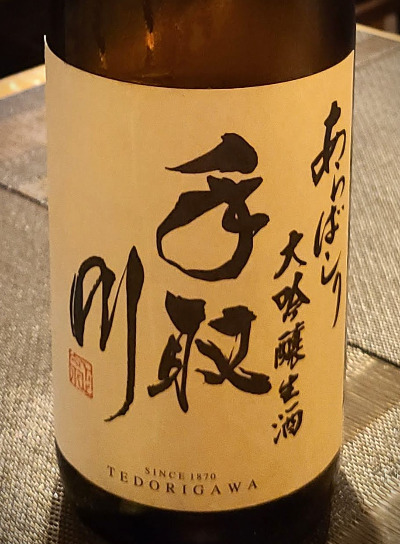 あらばしり
大吟醸生酒
手取川
SINCE 1870
TEDORIGAWA